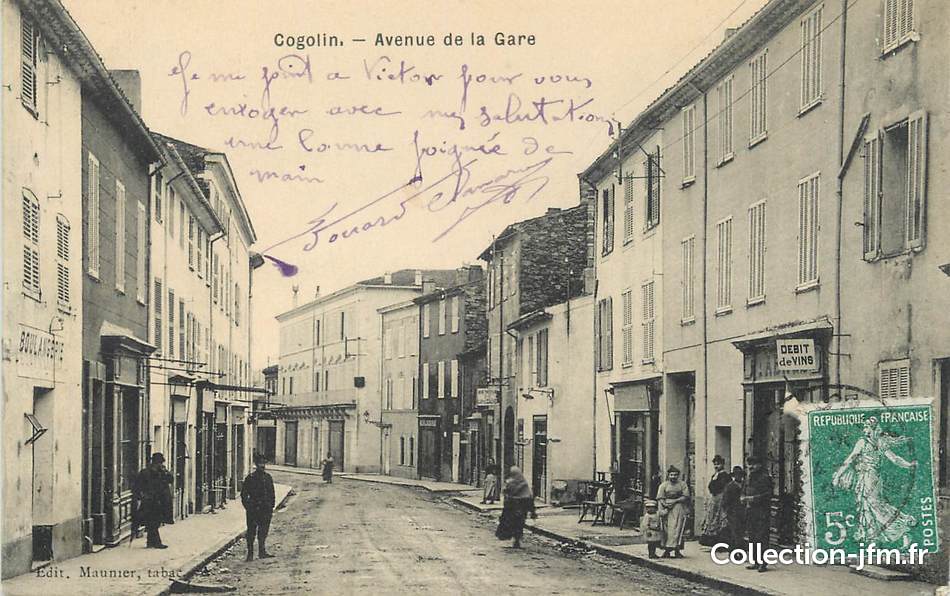 Cogolin. — Avenue de la Gare
Je me joint a Victor pour vous
envoyer avec mes salutations
une bonne poignée de
main
BOULANGERIE
DEBIT
de VINS
REPUBLIQUE FRANÇAISE
5c
POSTES
Edit. Maunier, tabac
Collection-jfm.fr